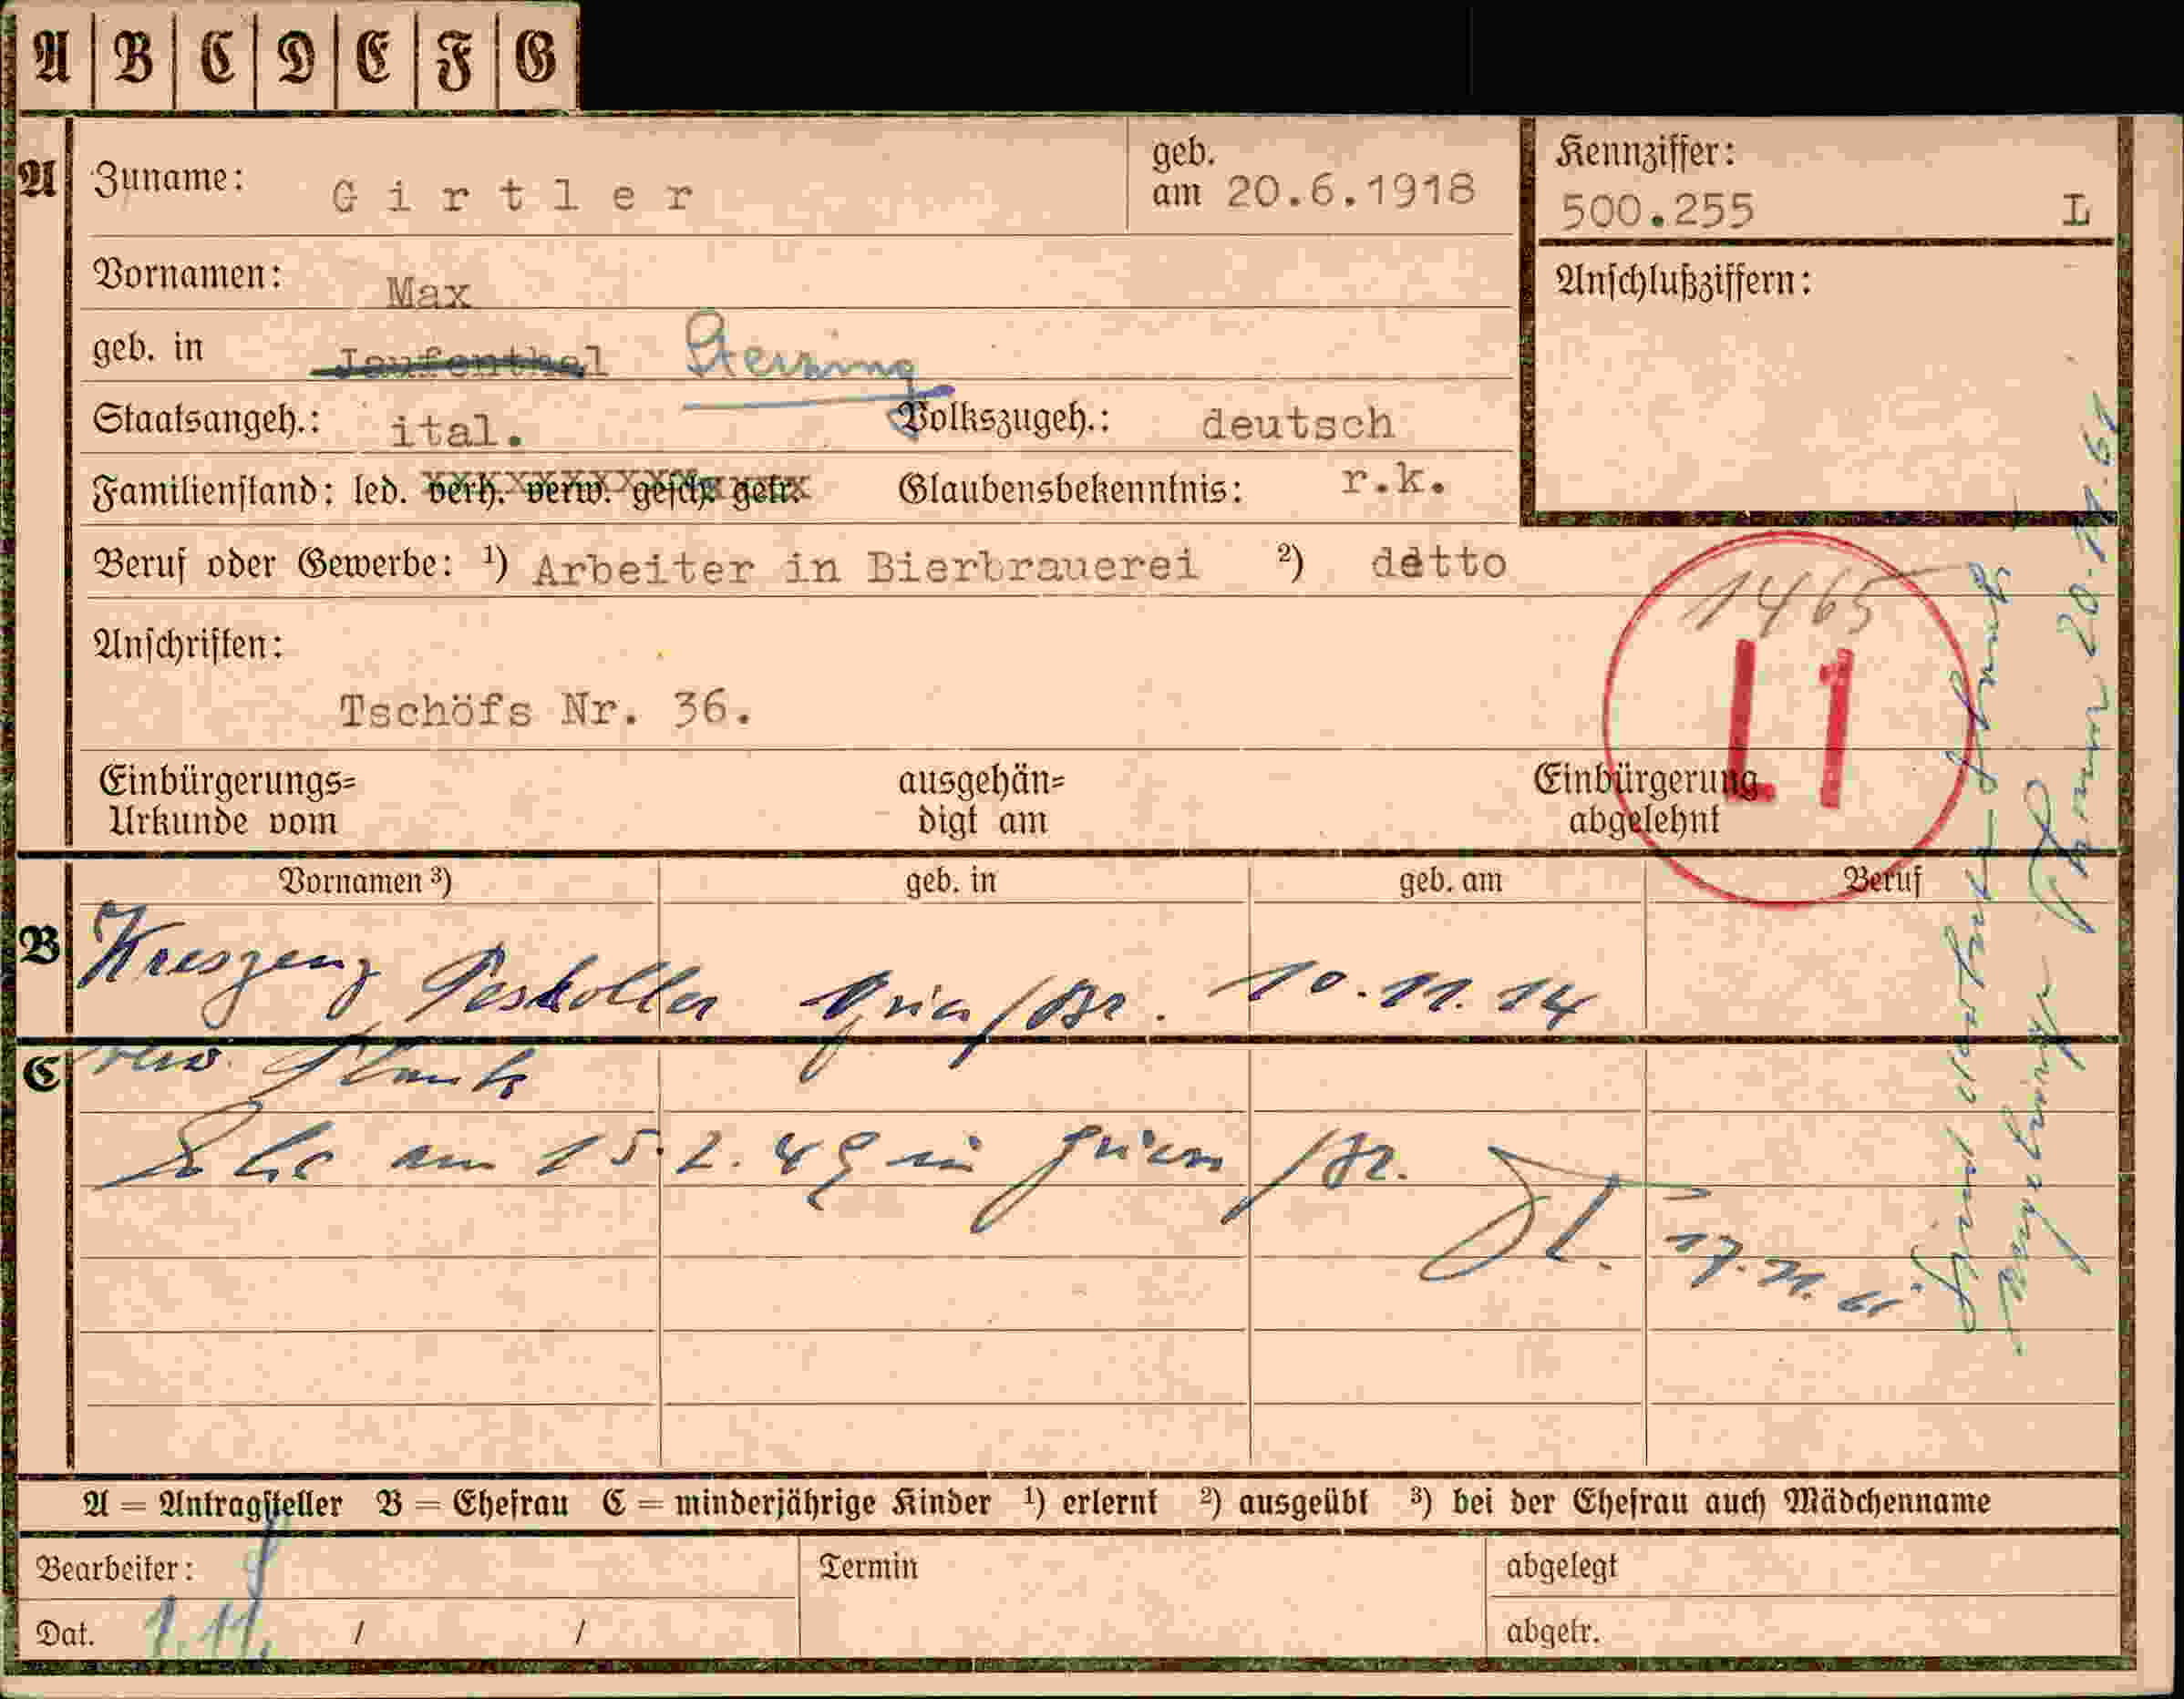 A B C D E F G
A Zuname: Girtler geb. am 20.6.1918
Kennziffer: 500.255 L
Vornamen: Max
Anschlußziffern:
geb. in Jaufenthal Sterzing
Staatsangeh.: ital. Volkszugeh.: deutsch
Familienstand: led. verh. verw. gesch. getr. Glaubensbekenntnis: r.k.
Beruf oder Gewerbe: ¹) Arbeiter in Bierbrauerei ²) detto
1465
L1
Anschriften:
Tschöfs Nr. 36.
Einbürgerungs= Urkunde vom ausgehän= digt am Einbürgerung abgelehnt
Vornamen ³) geb. in geb. am Beruf
B Kreszenz Peskoller Gries/Br. 10.11.14
C verw. Plank
Ehe am 15.2.49 in Gries /Br.
17.11.61
20.12.61
A = Antragsteller B = Ehefrau C = minderjährige Kinder ¹) erlernt ²) ausgeübt ³) bei der Ehefrau auch Mädchenname
Bearbeiter: Termin abgelegt
Dat. 1.11. / / abgetr.